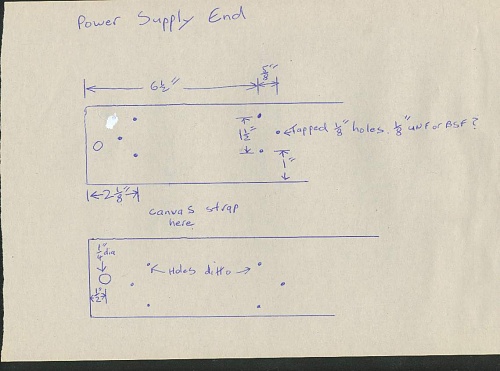 Power Supply End
6½"
5/8"
1½"
Tapped 1/8" holes. 1/8" UNF or BSF?
1"
2 1/8"
canvas strap
here
1/4"
dia
Holes ditto
½"